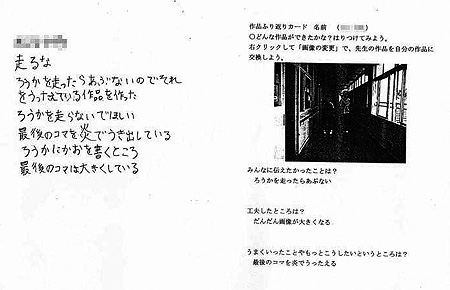 走るな
ろうかを走ったらあぶないのでそれ
をうったえている作品を作った
ろうかを走らないでほしい
最後のコマを炎でうき出している
ろうかにかおを書くところ
最後のコマは大きくしている
作品ふり返りカード 名前 (
〇どんな作品ができたかな？はりつけてみよう。
右クリックして「画像の変更」で、先生の作品を自分の作品に
交換しよう。
みんなに伝えたかったことは？
ろうかを走ったらあぶない
工夫したところは？
だんだん画像が大きくなる
うまくいったことやもっとこうしたいというところは？
最後のコマを炎でうったえる